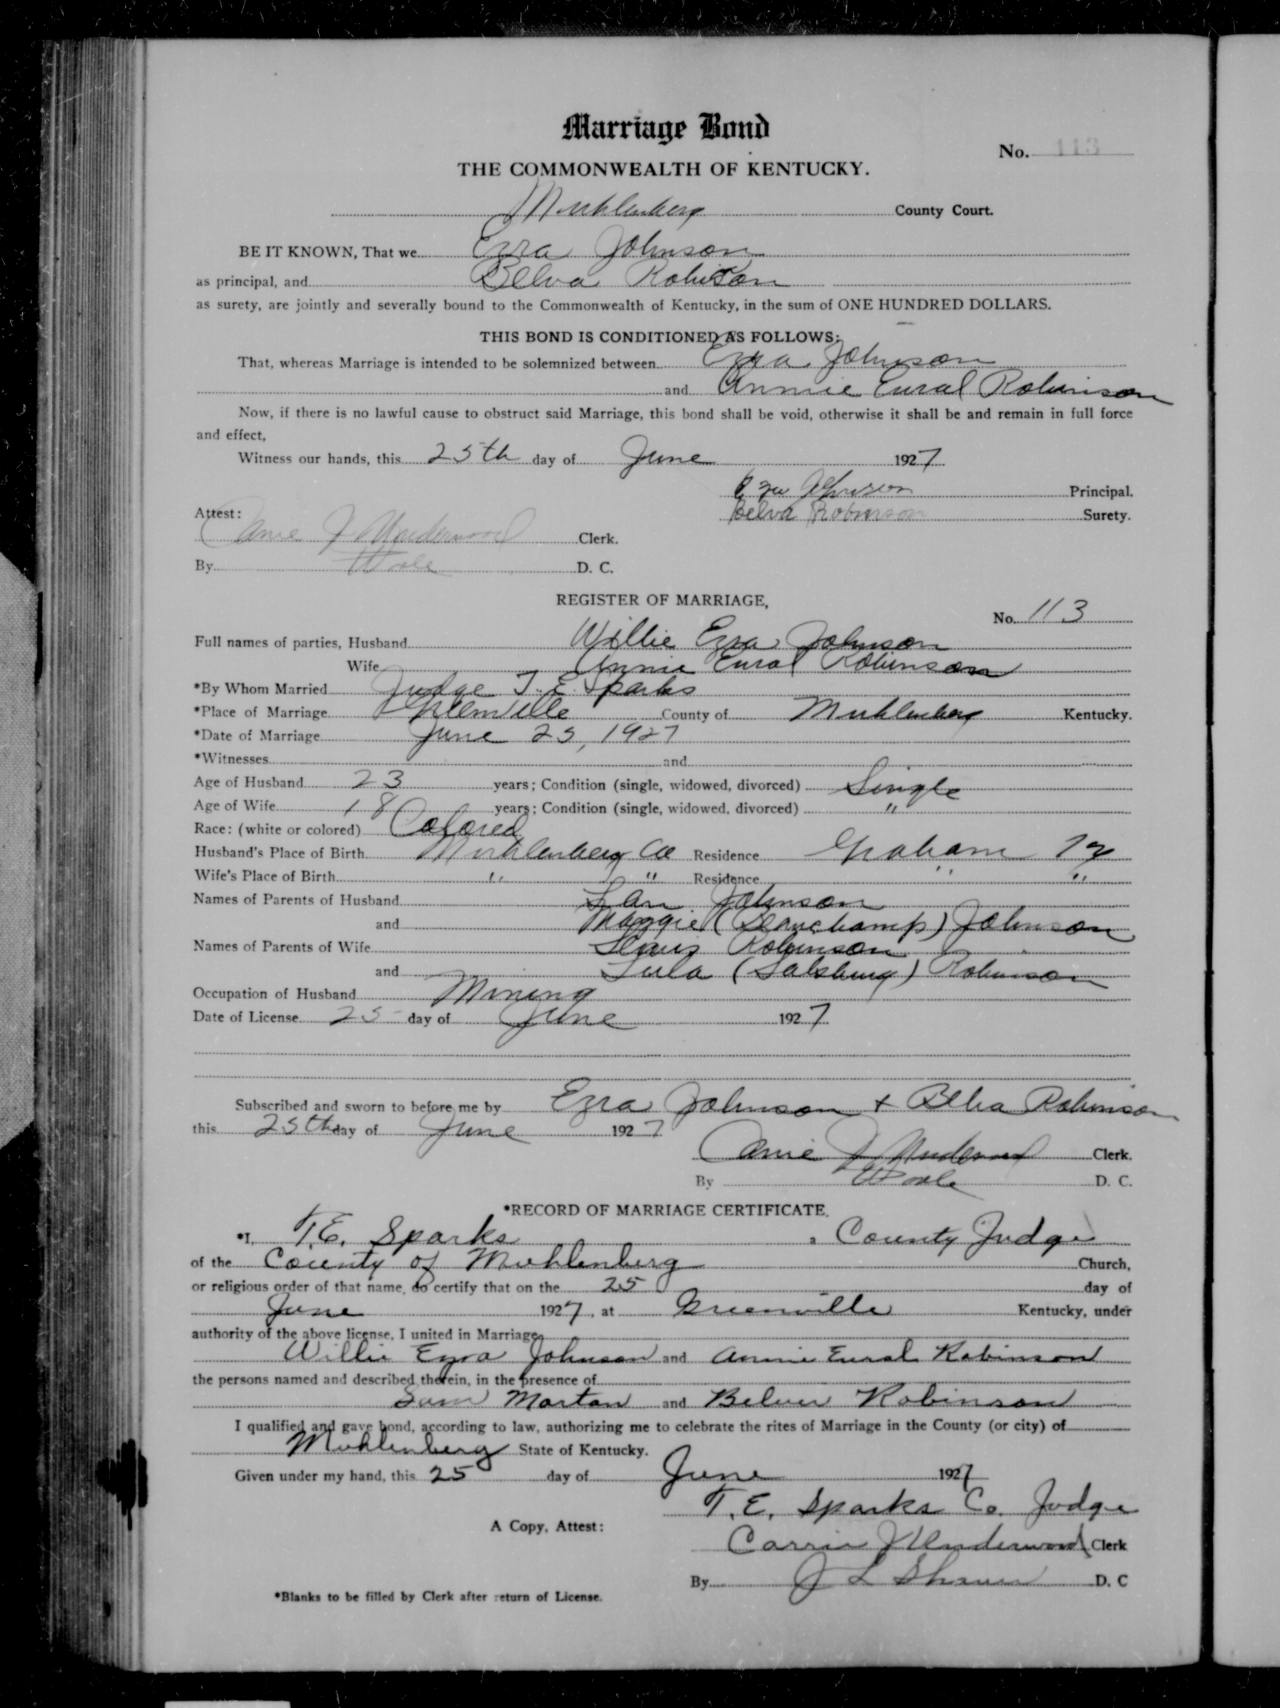 Marriage Bond
No. 113
THE COMMONWEALTH OF KENTUCKY.
Muhlenberg County Court.
BE IT KNOWN, That we Ezra Johnson
as principal, and Belva Robinson
as surety, are jointly and severally bound to the Commonwealth of Kentucky, in the sum of ONE HUNDRED DOLLARS.
THIS BOND IS CONDITIONED AS FOLLOWS:
That, whereas Marriage is intended to be solemnized between Ezra Johnson
and Annie Eural Robinson
Now, if there is no lawful cause to obstruct said Marriage, this bond shall be void, otherwise it shall be and remain in full force
and effect,
Witness our hands, this 25th day of June 1927
Ezra Johnson Principal.
Belva Robinson Surety.
Attest:
Carrie J Underwood Clerk.
By D. C.
REGISTER OF MARRIAGE,
No. 113
Full names of parties, Husband Willie Ezra Johnson
Wife Annie Eural Robinson
*By Whom Married Judge T. E. Sparks
*Place of Marriage Greenville County of Muhlenberg Kentucky.
*Date of Marriage June 25, 1927
*Witnesses and
Age of Husband 23 years; Condition (single, widowed, divorced) Single
Age of Wife 18 years; Condition (single, widowed, divorced) "
Race: (white or colored) Colored
Husband's Place of Birth Muhlenberg Co Residence Graham Ky
Wife's Place of Birth " " Residence " "
Names of Parents of Husband Johnson
and Maggie (Beauchamp) Johnson
Names of Parents of Wife Robinson
and Lula (Salsburg) Robinson
Occupation of Husband Mining
Date of License 25 day of June 1927
Subscribed and sworn to before me by Ezra Johnson + Belva Robinson
this 25th day of June 1927
Carrie J Underwood Clerk.
By D. C.
*RECORD OF MARRIAGE CERTIFICATE.
*I, T.E. Sparks, a County Judge
of the County of Muhlenberg Church,
or religious order of that name, do certify that on the 25 day of
June 1927, at Greenville Kentucky, under
authority of the above license, I united in Marriage
Willie Ezra Johnson and Annie Eural Robinson
the persons named and described therein, in the presence of
Sam Morton and Belver Robinson
I qualified and gave bond, according to law, authorizing me to celebrate the rites of Marriage in the County (or city) of
Muhlenberg State of Kentucky.
Given under my hand, this 25 day of June 1927
T. E. Sparks Co. Judge
A Copy, Attest:
Carrie J Underwood Clerk
By J L D. C
*Blanks to be filled by Clerk after return of License.